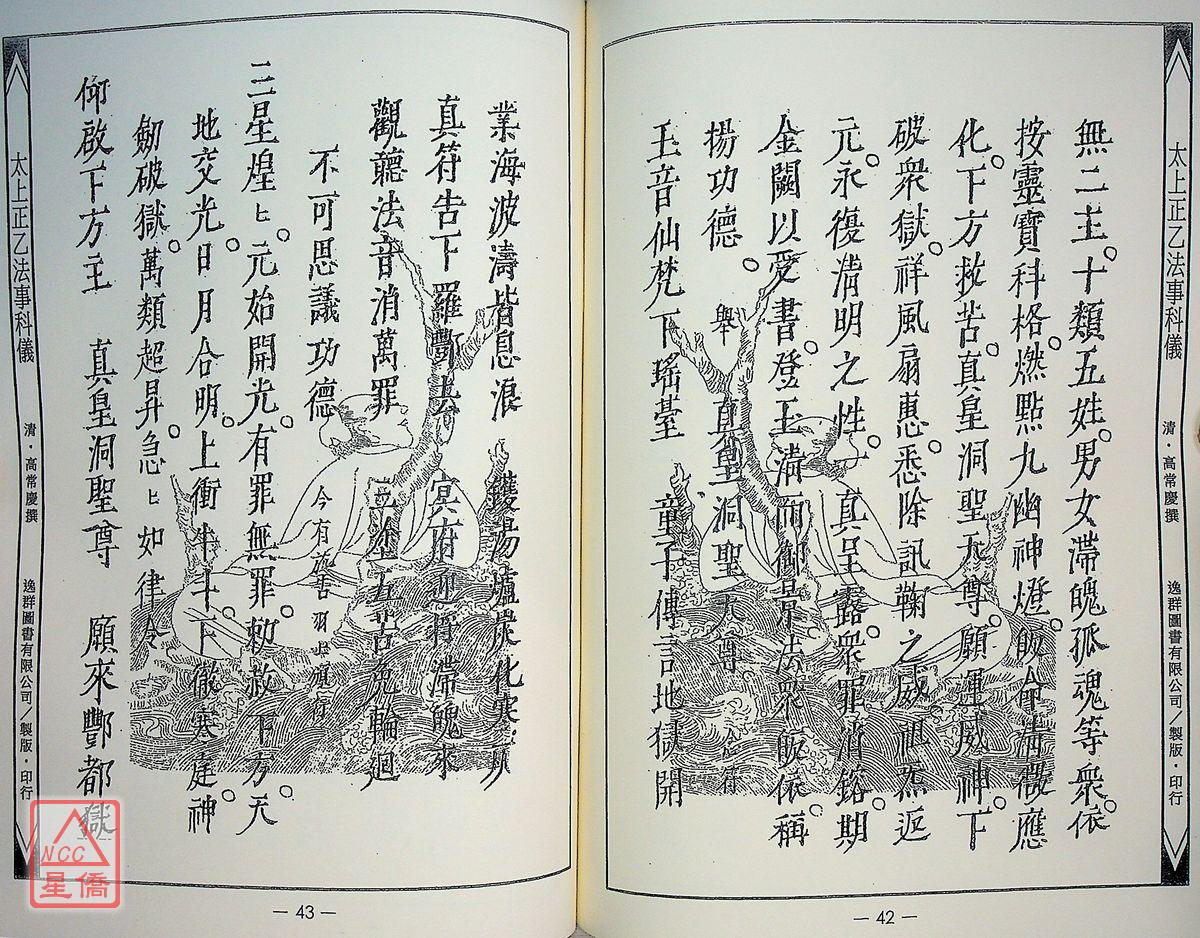 太上正乙法事科儀
清・高常慶撰
逸群圖書有限公司／製版・印行
無二主。十類五姓。男女滯魄孤魂等衆。依
按靈寶科格。燃點九幽神燈。皈命清微應
化。下方救苦。真皇洞聖天尊。願運威神。下
破衆獄。祥風扇惠。悉除訊鞠之威。
返
元。永復清明之性。一真呈露。衆罪消鎔。期
金闕以受書。登玉清而御景。法衆皈依。稱
揚功德。
舉 真皇洞聖天尊 念符
玉音仙梵下瑤臺 童子傳言地獄開
— 42 —
業海波濤皆息浪 鑊湯爐炭化寒
真符告下羅酆去 冥府迎將滯魄來
觀聽法音消萬罪 三塗五苦免輪廻
不可思議功德
今有
符
三星煌匕。元始開光。有罪無罪。勅赦下方。天
地交光。日月合明。上衝牛斗。下徹寒庭。神
劒破獄。萬類超昇。急匕如律令
仰啟下方主 真皇洞聖尊 願來酆都獄
— 43 —
太上正乙法事科儀
清・高常慶撰
逸群圖書有限公司／製版・印行
NCC
星僑